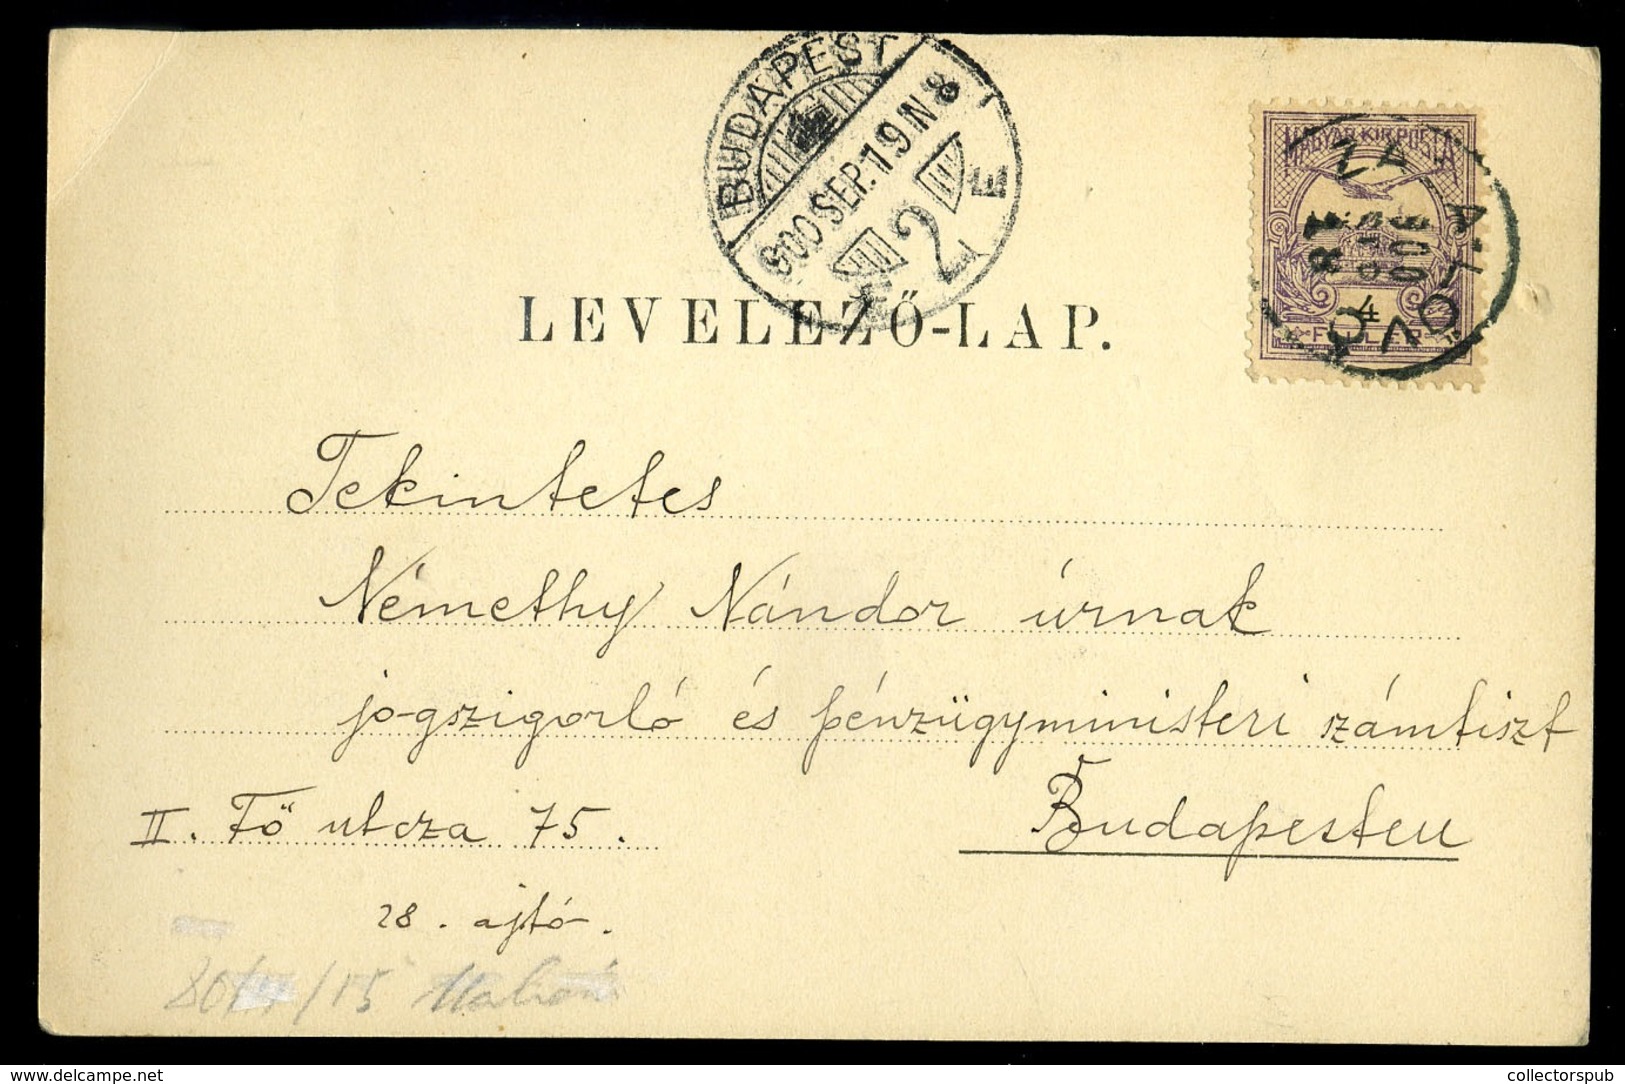 BUDAPEST
900 SEP. 19 N 8
2 E
MAGYAR KIR. POSTA
4
LEVELEZŐ-LAP.
Tekintetes
Némethy Nándor úrnak
jogszigorló és pénzügyministeri számtiszt
II. Fő utcza 75. Budapesten
28. ajtó.
www.delcampe.net
collectorspub